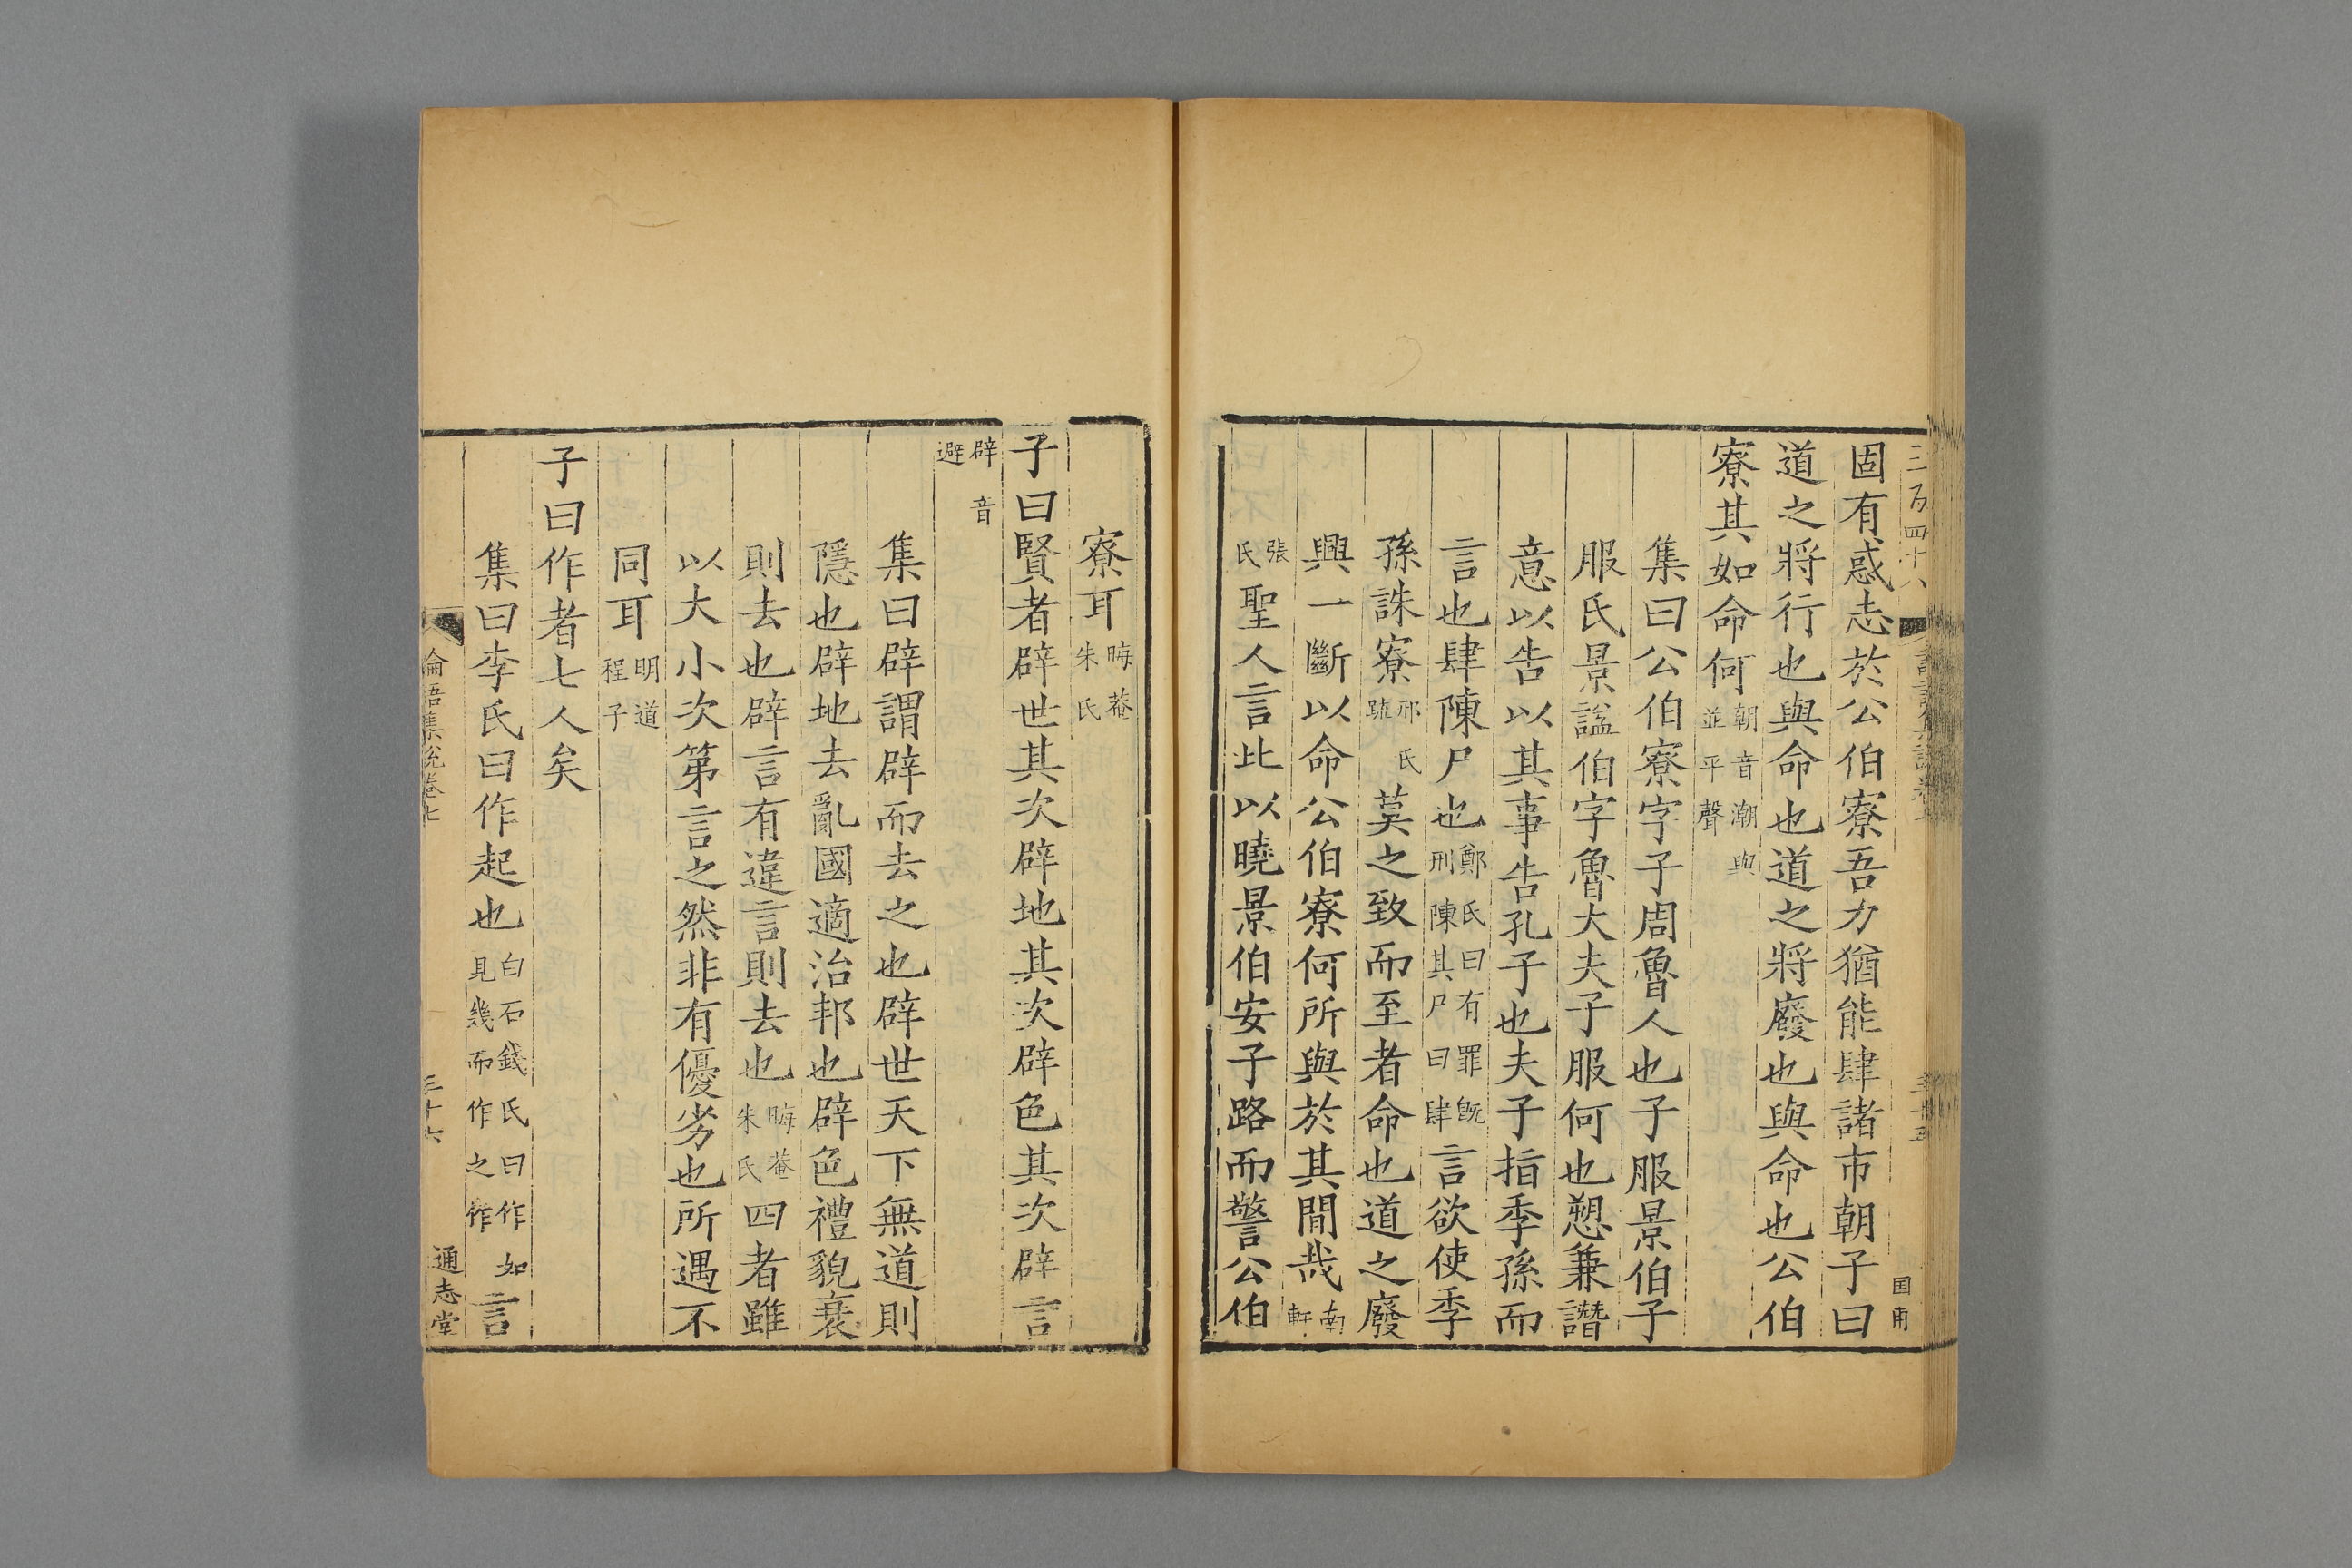 三百四十八
固有惑志於公伯寮吾力猶能肆諸市朝子曰
道之將行也與命也道之將廢也與命也公伯
寮其如命何朝音潮與並平聲
集曰公伯寮字子周魯人也子服景伯子
服氏景諡伯字魯大夫子服何也愬兼譖
意以告以其事告孔子也夫子指季孫而
言也肆陳尸也鄭氏曰有罪旣刑陳其尸曰肆言欲使季
孫誅寮邢氏疏莫之致而至者命也道之廢
興一斷以命公伯寮何所與於其閒哉南軒
張氏聖人言此以曉景伯安子路而警公伯
寮耳晦菴朱氏
子曰賢者辟世其次辟地其次辟色其次辟言
辟音避
集曰辟謂辟而去之也辟世天下無道則
隱也辟地去亂國適治邦也辟色禮貌衰
則去也辟言有違言則去也晦菴朱氏四者雖
以大小次第言之然非有優劣也所遇不
同耳明道程子
子曰作者七人矣
集曰李氏曰作起也白石錢氏曰作如見幾而作之作言
論語集說卷七
三十六
通志堂